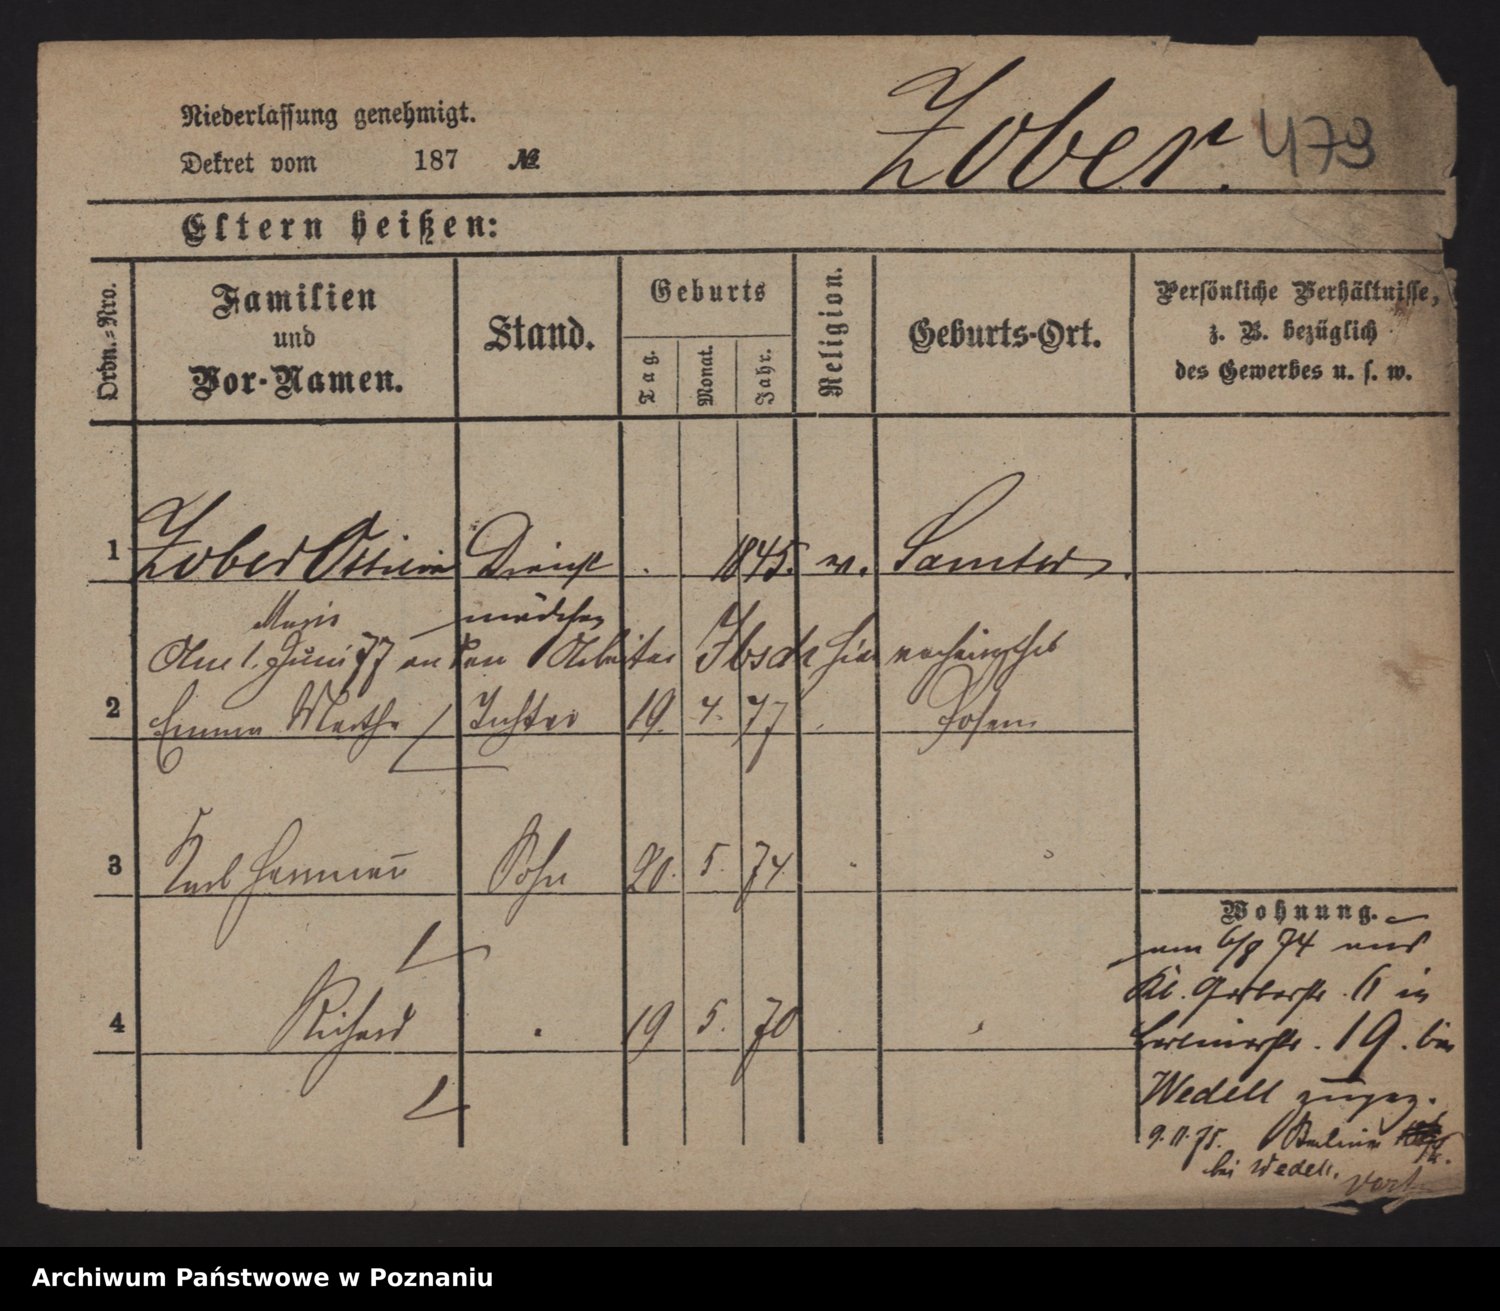 Niederlassung genehmigt.
Zober. 473
Dekret vom 187 №
Eltern heißen:
Ordn.-Nro.
Familien
und
Vor-Namen.
Stand.
Geburts
Tag.
Monat.
Jahr.
Religion.
Geburts-Ort.
Persönliche Verhältnisse,
z. B. bezüglich
des Gewerbes u. s. w.
1 Zober Dienst 1845. Samter.
mädchen
Am 1. Juni 77 an den Arbeiter hier
2 Emma Martha Tochter 19. 4. 77 Posen
3 Karl Hermann Sohn 20. 5. 74
4 Richard 19 5. 70
Wohnung.
am 6/8 74 aus
Kl. Gerberstr. 11 in
Berlinerstr. 19. bei
Wedell zugez.
9.11.75. Berliner
bei Wedell.
Archiwum Państwowe w Poznaniu